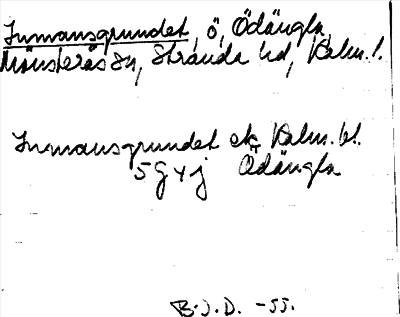 Inmansgrundet, ö, Ödängla,
Mönsterås sn, Stranda hd, Kalm. l.
Inmansgrundet ek. Kalm. bl.
5 G y j Ödängla
B.J.D. -55.